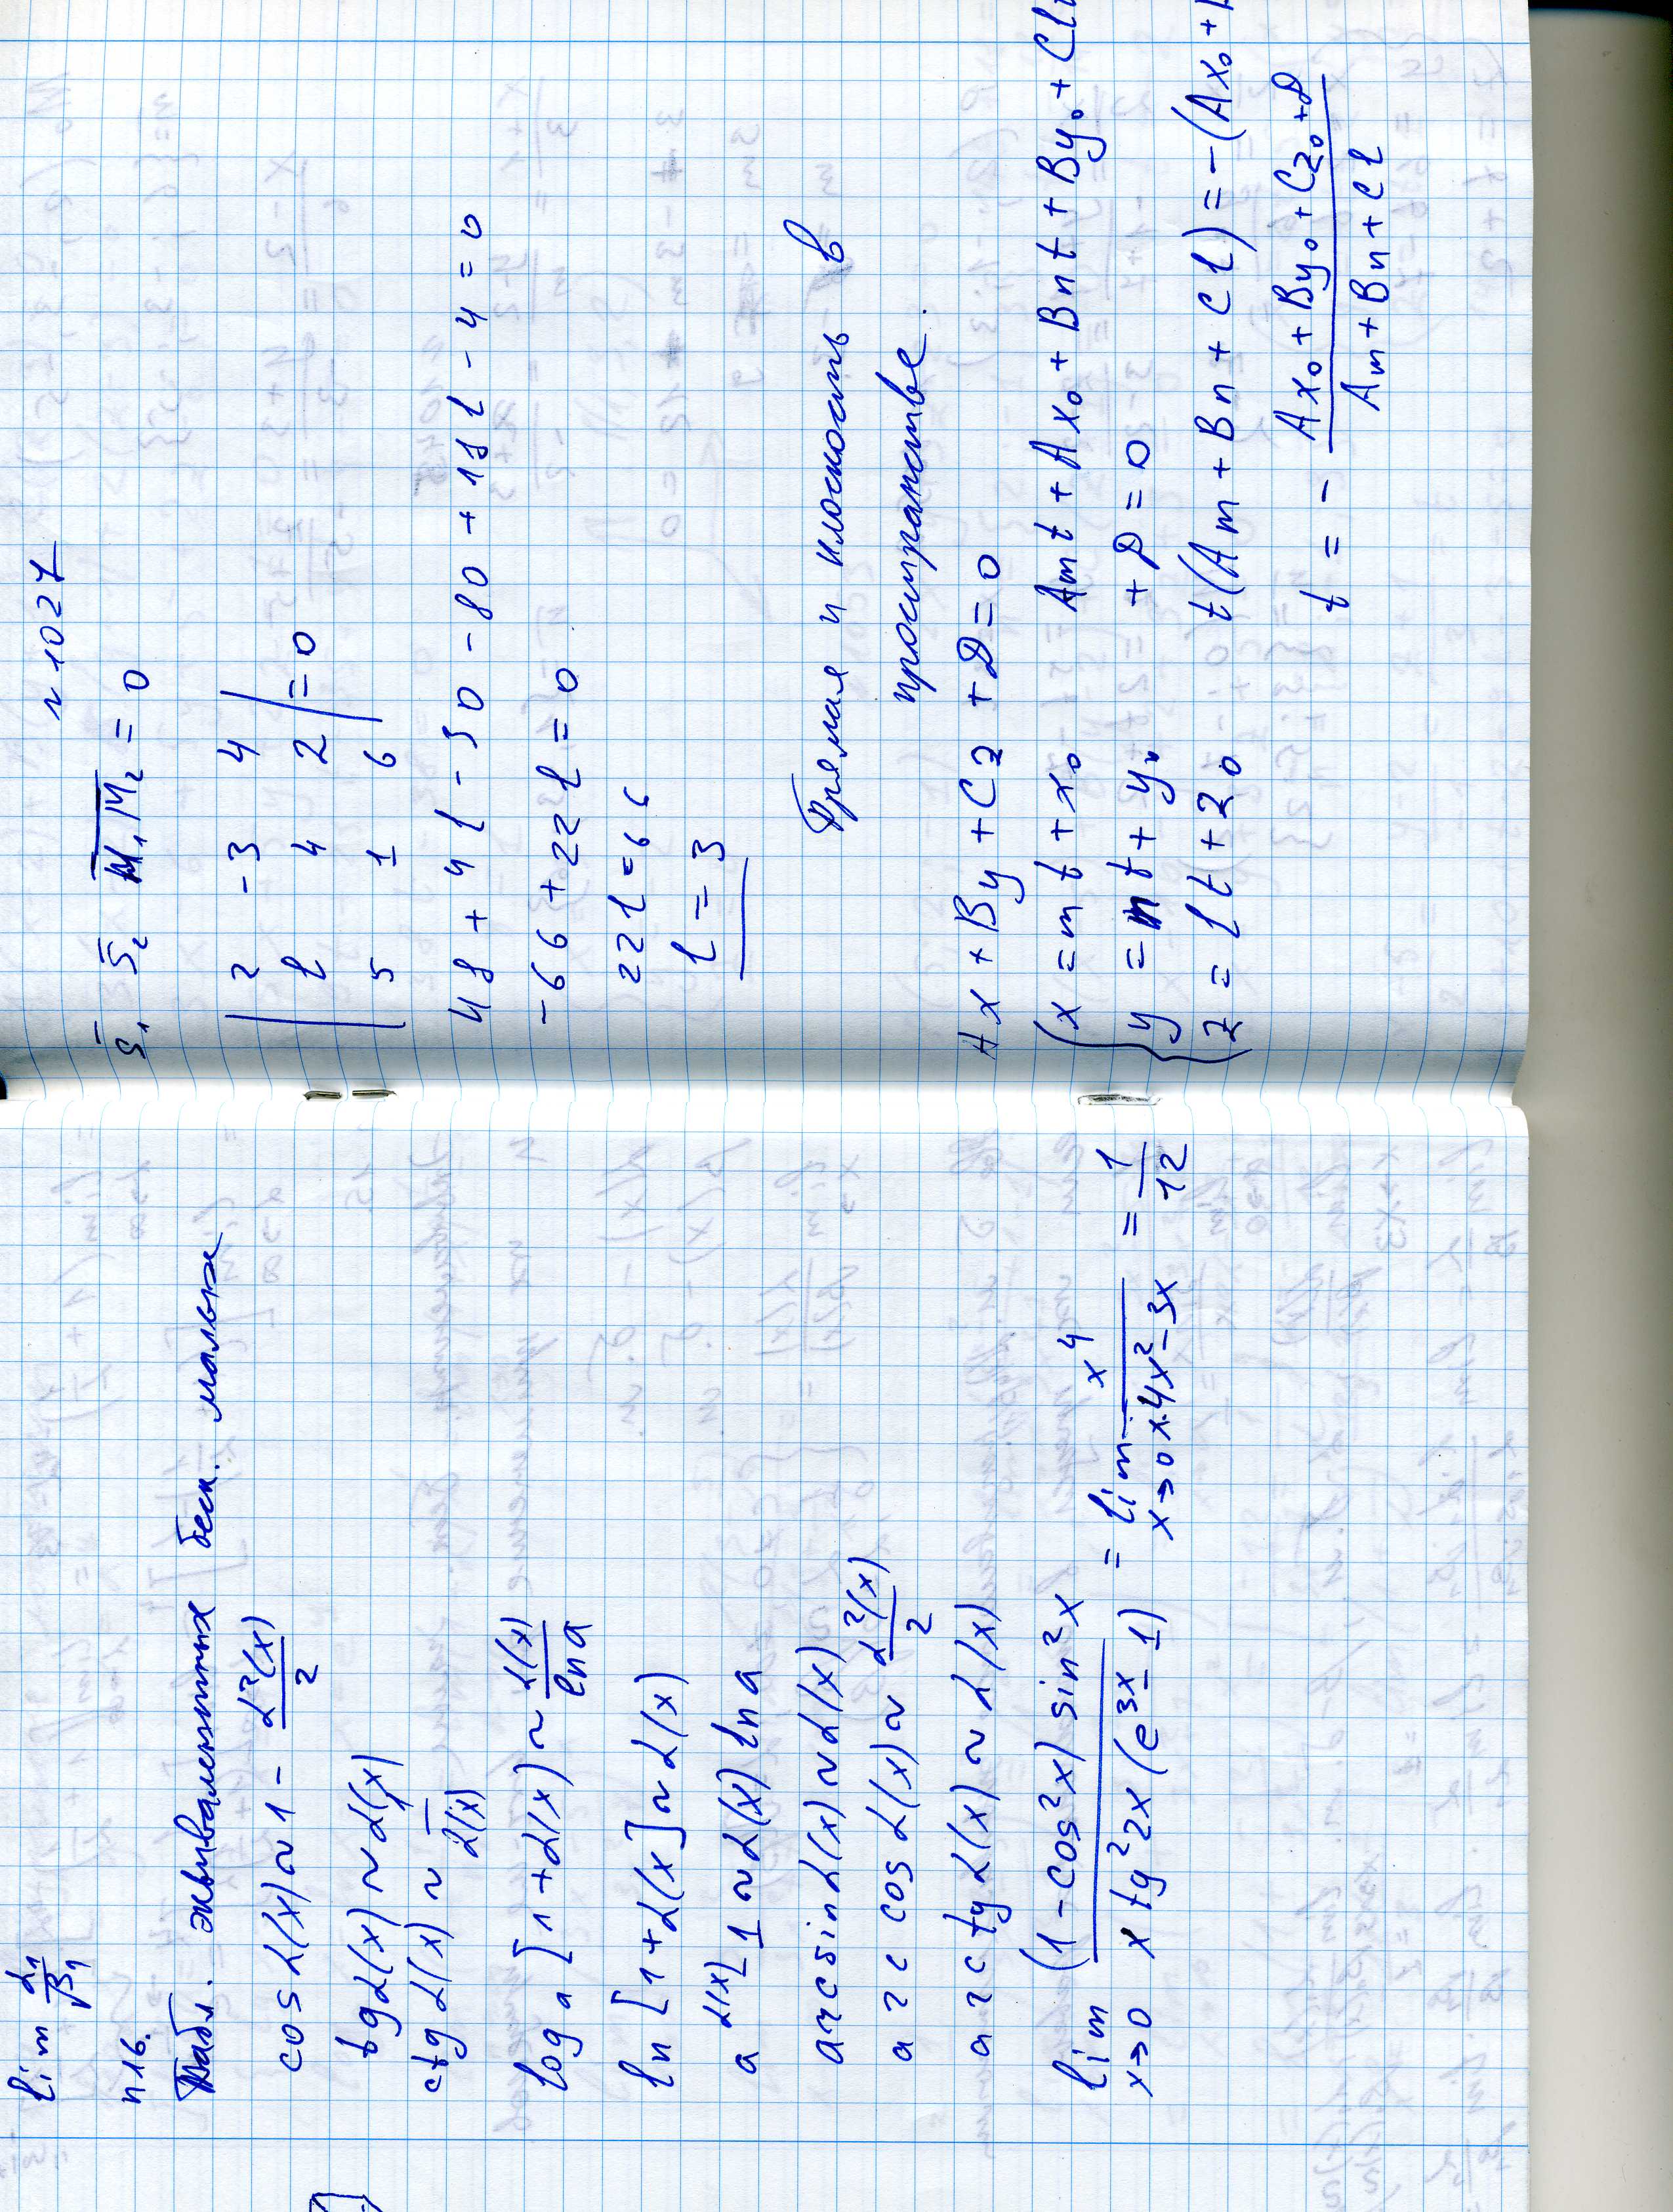 lim α₁/β₁
n 16.
Табл. эквивалентных беск. малых
cos α(x) ~ 1 - α²(x)/2
tg α(x) ~ α(x)
ctg α(x) ~ 1/α(x)
logₐ [1 + α(x)] ~ α(x)/ln a
ln [1 + α(x] ~ α(x)
a^α(x) - 1 ~ α(x) ln a
arcsin α(x) ~ α(x)
arc cos α(x) ~ α²(x)/2
arc tg α(x) ~ α(x)
lim x→0 (1 - cos²x) sin²x / x tg²2x (e^3x - 1) = lim x→0 x⁴ / x·4x²-3x = 1/12
n 1027
s̅₁ s̅₂ M₁M₂ = 0
| 2 -3 4 |
| l 4 2 | = 0
| 5 1 6 |
48 + 4l - 30 - 80 + 18l - 4 = 0
-66 + 22l = 0
22l = 66
l = 3
Прямая и плоскость в
пространстве.
Ax + By + Cz + D = 0
{ x = mt + x₀ Amt + Ax₀ + Bnt + By₀ + Cl
y = nt + y₀ + D = 0
z = lt + z₀ t(Am + Bn + Cl) = -(Ax₀ +
t = - Ax₀ + By₀ + Cz₀ + D / Am + Bn + Cl